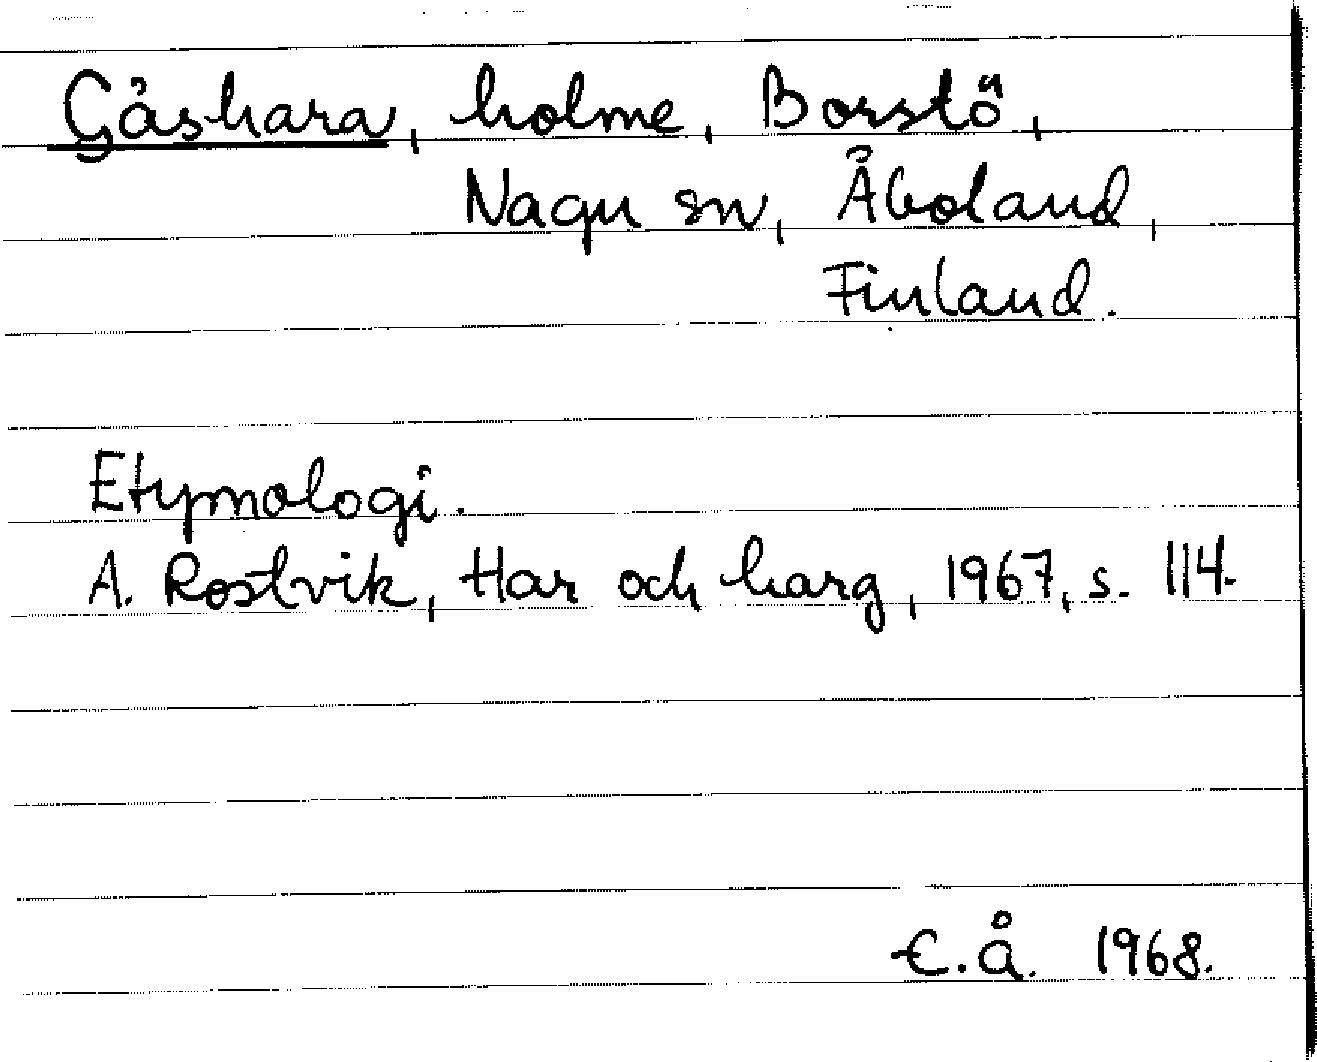 Gåshara, holme, Borstö,
Nagu sn, Åboland,
Finland.
Etymologi.
A. Rostvik, Har och harg, 1967, s. 114.
E.Å. 1968.